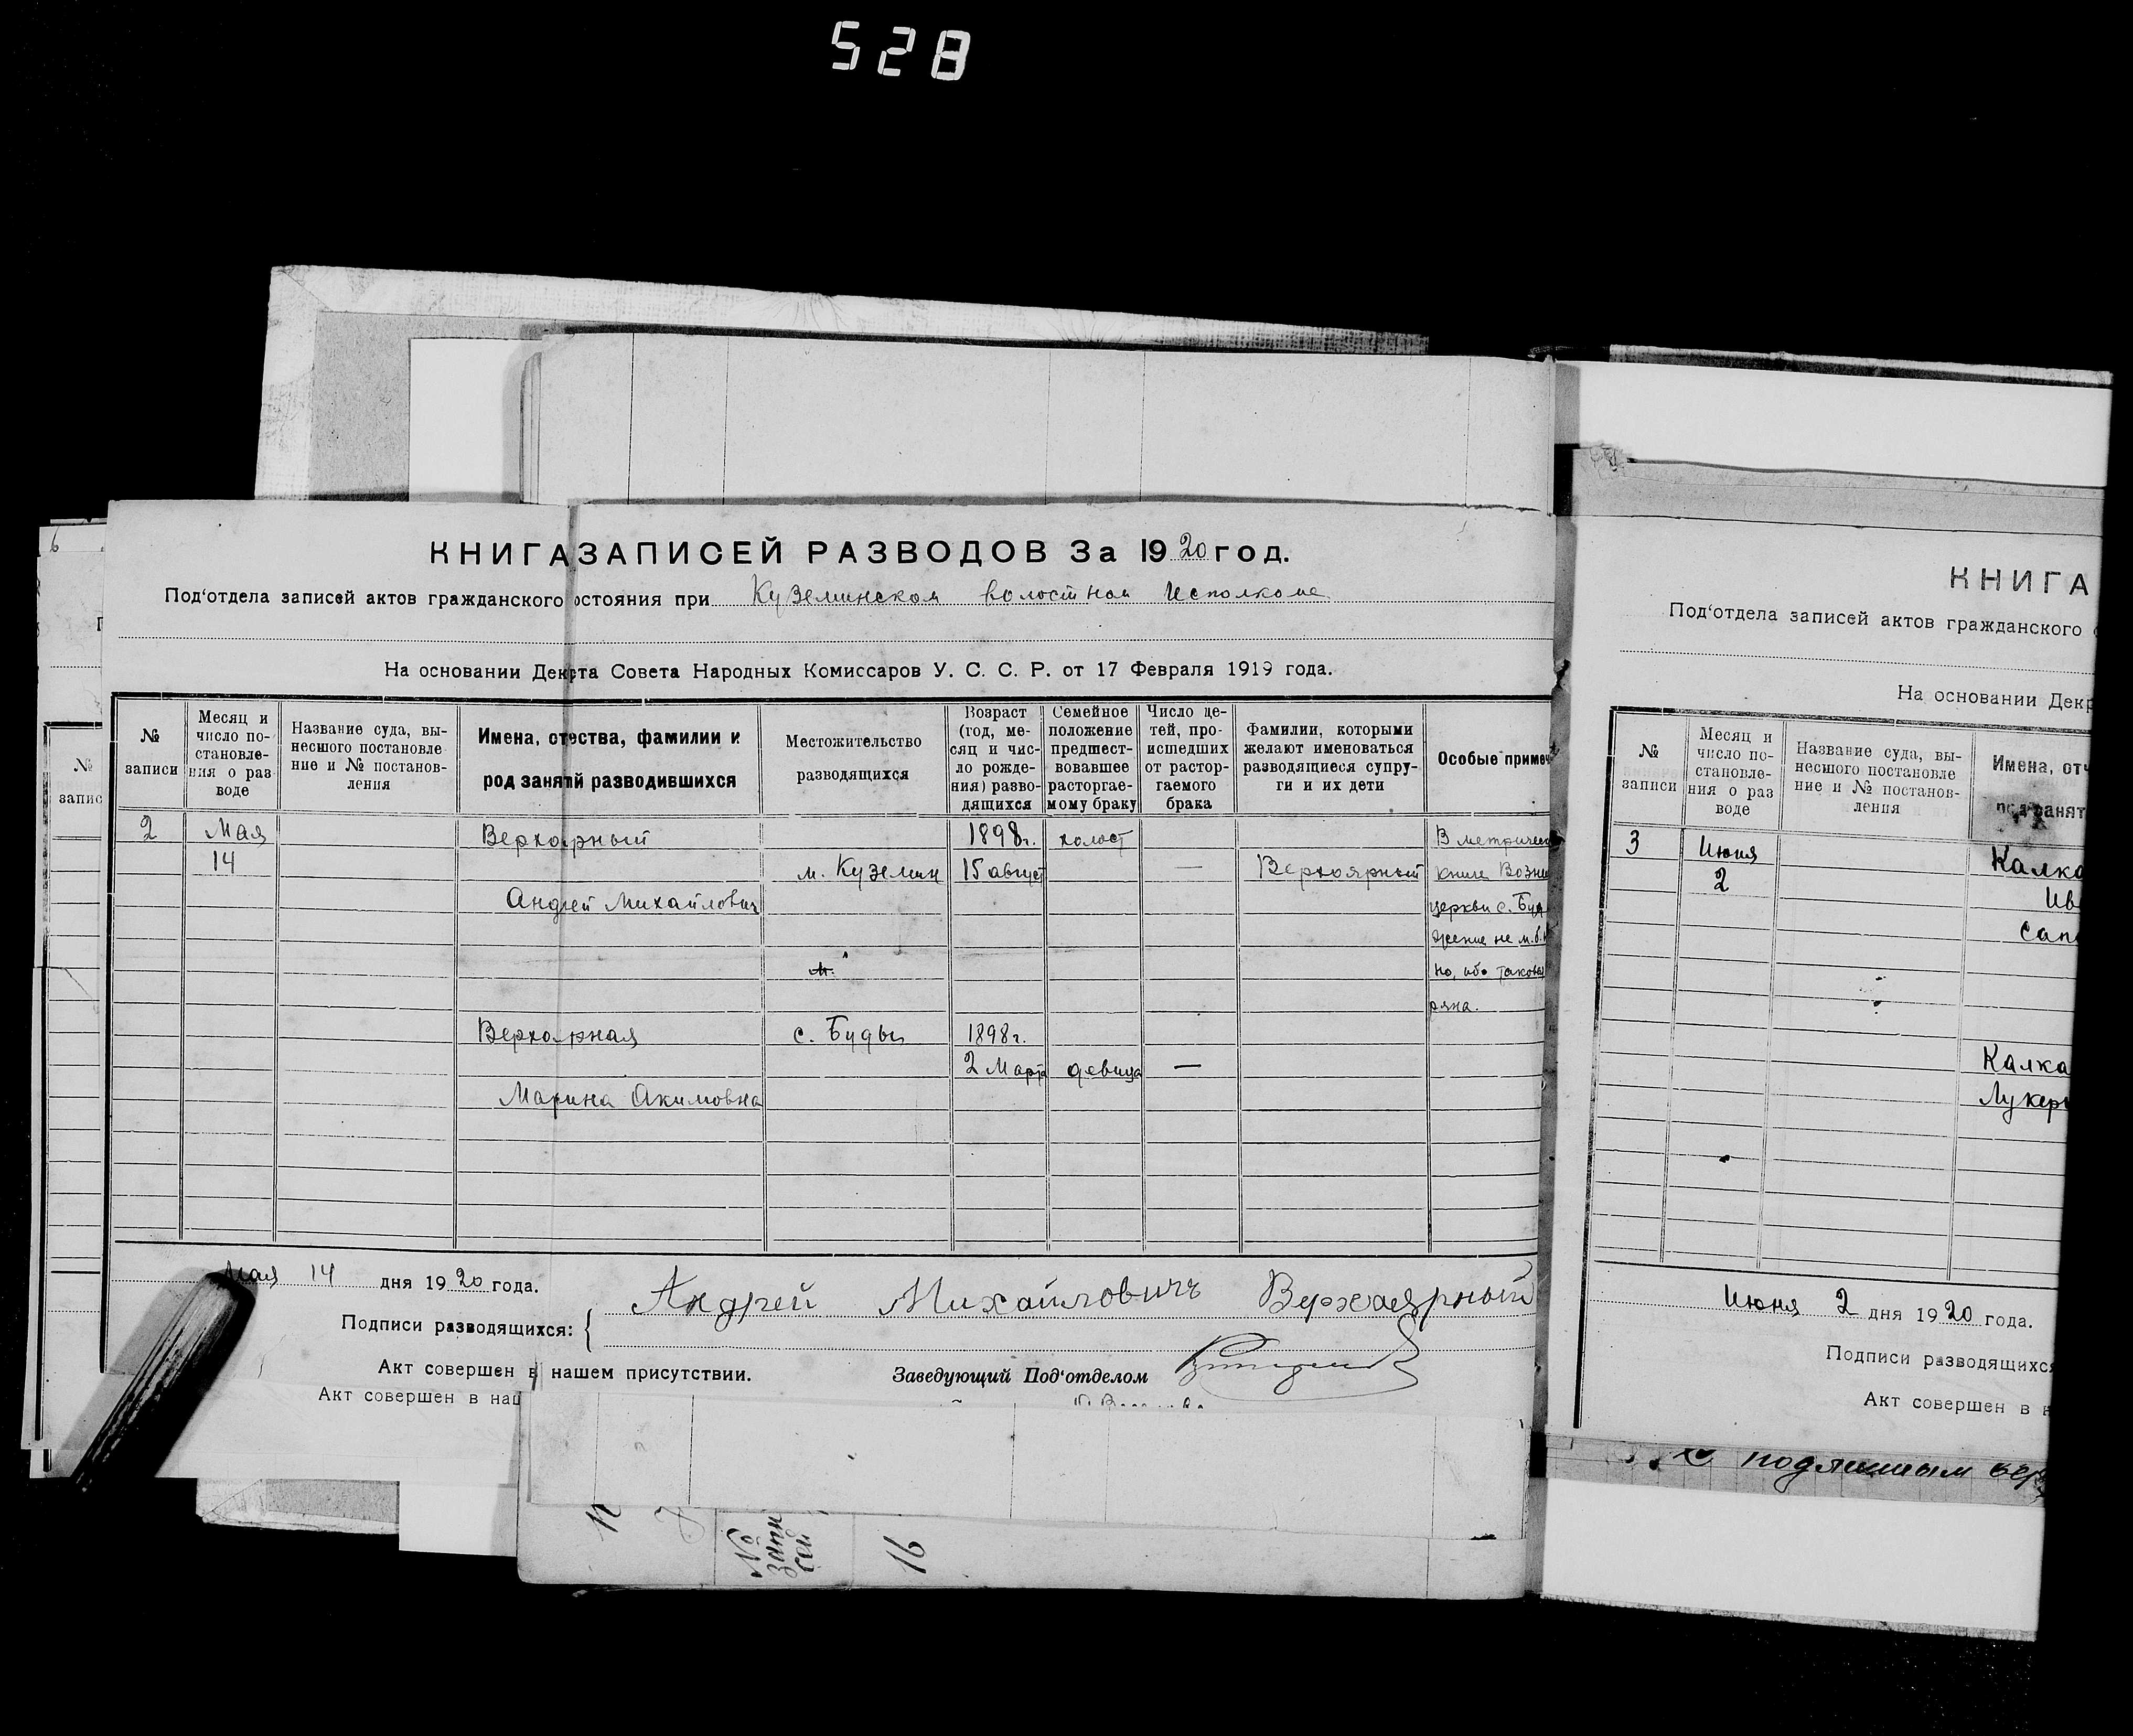 528
КНИГА ЗАПИСЕЙ РАЗВОДОВ За 1920 год.
Под‘отдела записей актов гражданского остояния при Куземинском волостном Исполкоме
На основании Декрета Совета Народных Комиссаров У. С. С. Р. от 17 Февраля 1919 года.
№ записи
Месяц и число по-становле-ния о раз воде
Название суда, вы-несшого постановле ние и № постанов-ления
Имена, отества, фамилии и род занятй разводившихся
Местожительство разводящихся
Возраст (год, ме-сяц и чис-ло рожде-ния) разво-дящихся
Семейное положение предшест-вовавшее расторгае-мому браку
Число де-тей, про-исшедших от растор-гаемого брака
Фамилии, которыми желают именоваться разводящиеся супру-ги и их дети
Особые примеч
2 Мая Верхоярный 1898г. холост В метричес
14 м. Куземин 15 август — Верхоярный книге Возне
Андрей Михайлович церкви с. Буд
жение не м.б.
м. но, ибо такова
ряна.
Верхоярная с. Буды 1898г.
2 Марта девица —
Марина Акимовна
Мая 14 дня 1920 года.
Андрей Михайловичъ Верхаярный
Подписи разводящихся:
Акт совершен в нашем присутствии. Заведующий Под‘отделом
Акт совершен в наш
№ запи сей
16
№
запис
КНИГА
Под‘отдела записей актов гражданского
На основании Декр
№ записи
Месяц и число по-становле-ния о раз воде
Название суда, вы-несшого постановле ние и № постанов-ления
Имена, отч
род занят
3 Июня Калка
2 Ив
Сап
Калка
Лукер
Июня 2 дня 1920 года.
Подписи разводящихс
Акт совершен в н
С подлинным вер